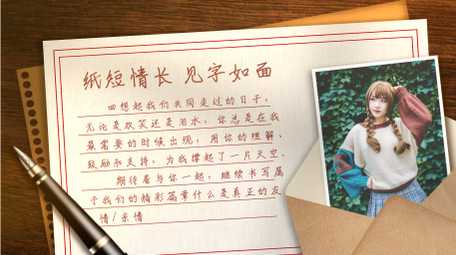 纸短情长 见字如面
回想起我们共同走过的日子，
无论是欢笑还是泪水，你总是在我
最需要的时候出现，用你的理解、
鼓励和支持，为我撑起了一片天空。
期待着与你一起，继续书写属
于我们的精彩篇章什么是真正的友
情/亲情